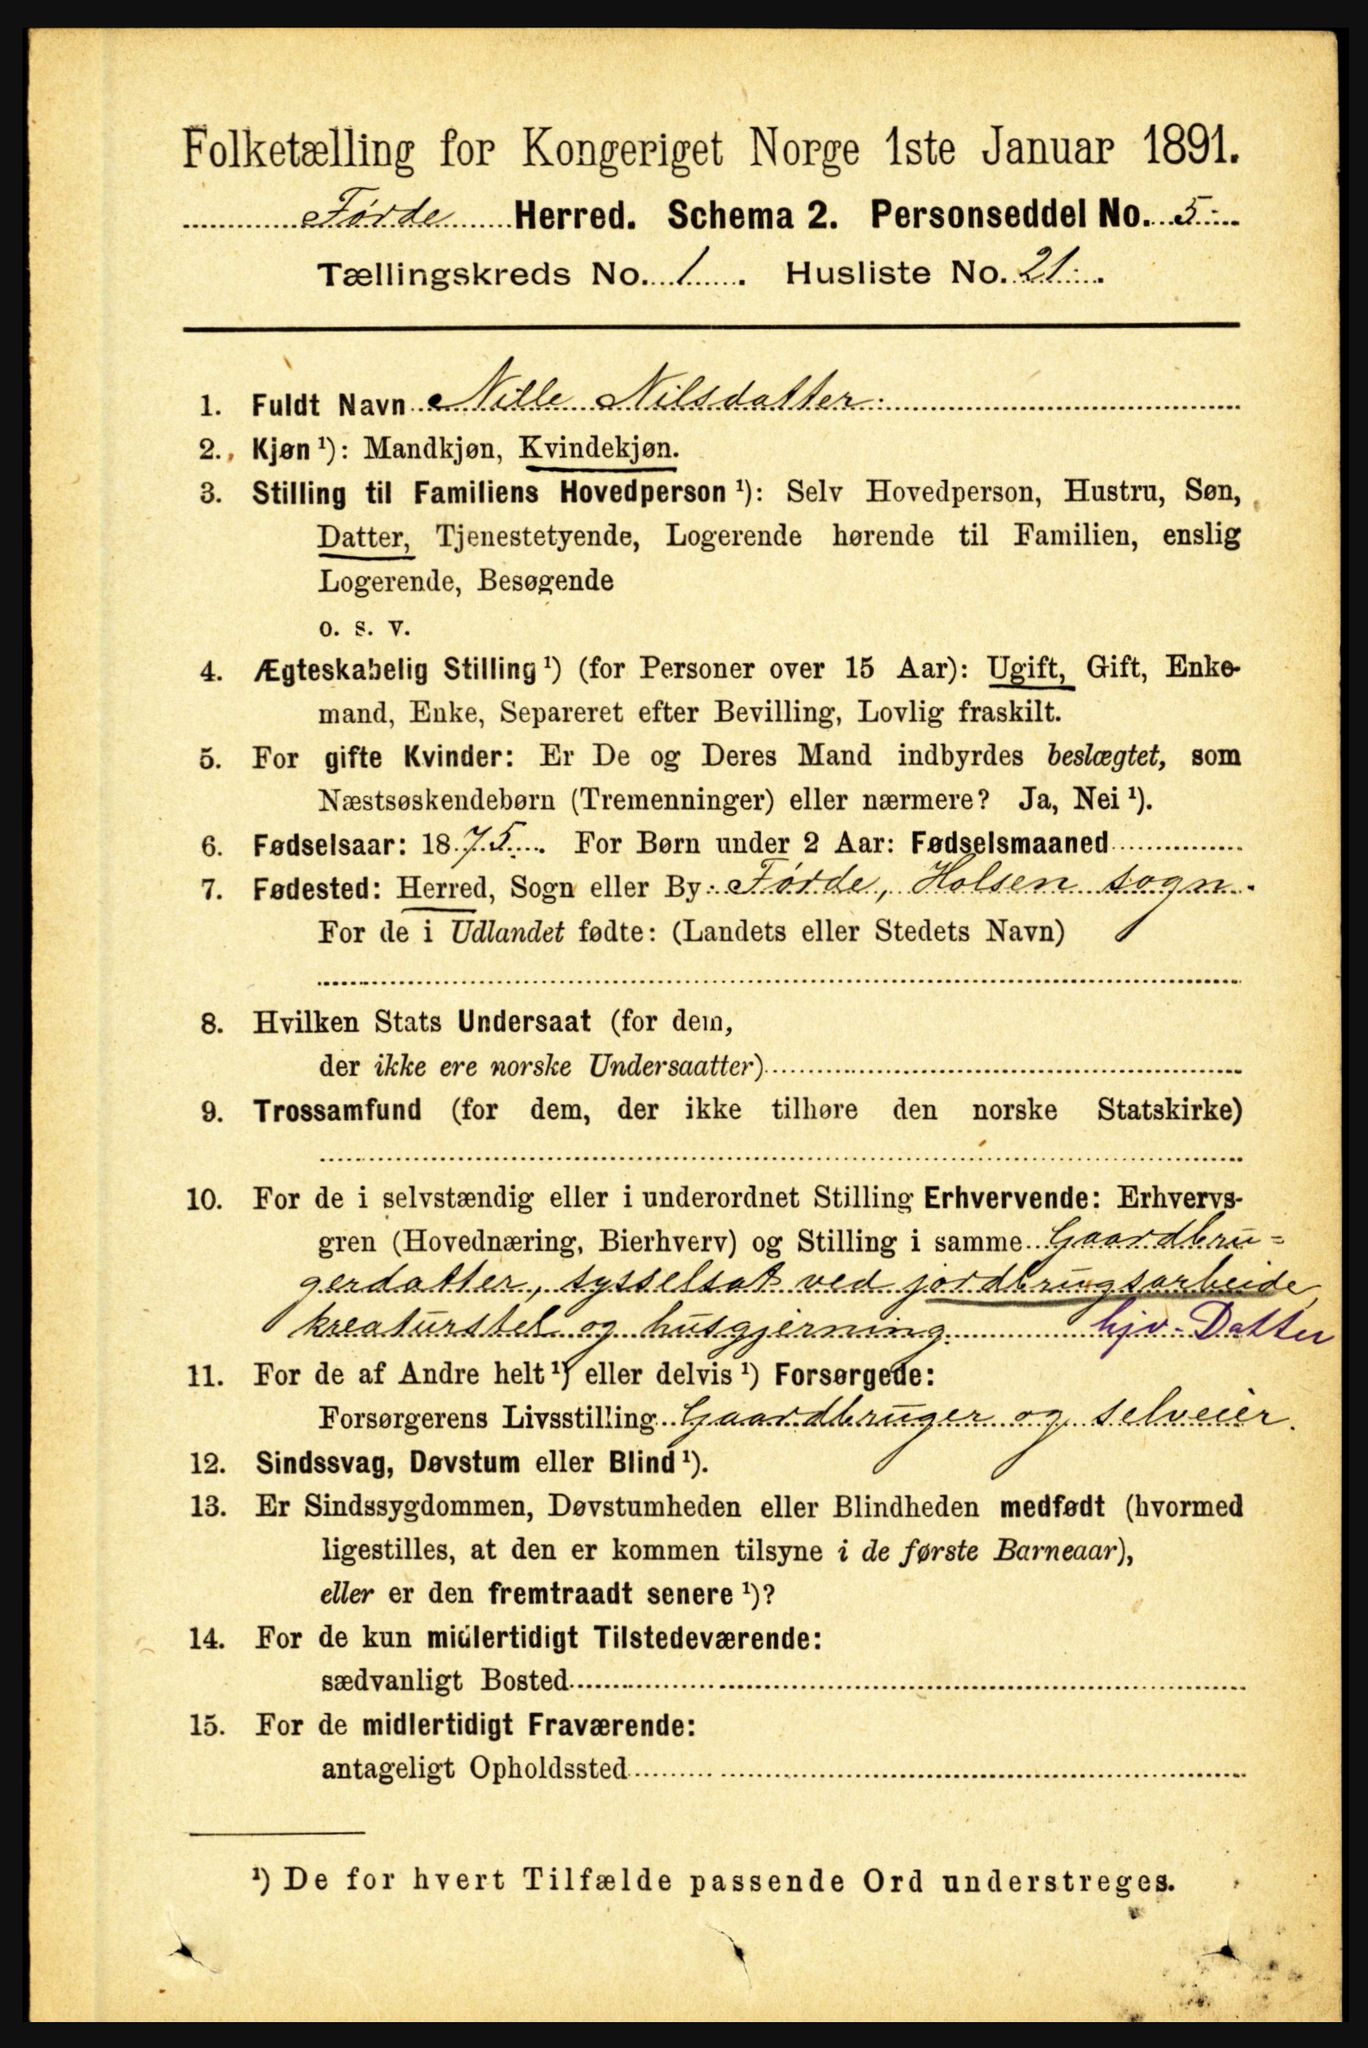 Folketælling for Kongeriget Norge 1ste Januar 1891.
Førde Herred. Schema 2. Personseddel No. 5.
Tællingskreds No. 1. Husliste No. 21.
1. Fuldt Navn Nille Nilsdatter.
2. Kjøn ¹): Mandkjøn, Kvindekjøn.
3. Stilling til Familiens Hovedperson ¹): Selv Hovedperson, Hustru, Søn,
Datter, Tjenestetyende, Logerende hørende til Familien, enslig
Logerende, Besøgende
o. s. v.
4. Ægteskabelig Stilling ¹) (for Personer over 15 Aar): Ugift, Gift, Enke-
mand, Enke, Separeret efter Bevilling, Lovlig fraskilt.
5. For gifte Kvinder: Er De og Deres Mand indbyrdes beslægtet, som
Næstsøskendebørn (Tremenninger) eller nærmere? Ja, Nei ¹).
6. Fødselsaar: 1875. For Børn under 2 Aar: Fødselsmaaned
7. Fødested: Herred, Sogn eller By Førde, Holsen sogn.
For de i Udlandet fødte: (Landets eller Stedets Navn)
8. Hvilken Stats Undersaat (for dem,
der ikke ere norske Undersaatter)
9. Trossamfund (for dem, der ikke tilhøre den norske Statskirke)
10. For de i selvstændig eller i underordnet Stilling Erhvervende: Erhvervs-
gren (Hovednæring, Bierhverv) og Stilling i samme Gaardbru=
gerdatter, sysselsat ved jordbrugsarbeide,
kreaturstel og husgjerning. hjv. Datter
11. For de af Andre helt ¹) eller delvis ¹) Forsørgede:
Forsørgerens Livsstilling Gaardbruger og selveier.
12. Sindssvag, Døvstum eller Blind ¹).
13. Er Sindssygdommen, Døvstumheden eller Blindheden medfødt (hvormed
ligestilles, at den er kommen tilsyne i de første Barneaar),
eller er den fremtraadt senere ¹)?
14. For de kun midlertidigt Tilstedeværende:
sædvanligt Bosted
15. For de midlertidigt Fraværende:
antageligt Opholdssted
¹) De for hvert Tilfælde passende Ord understreges.